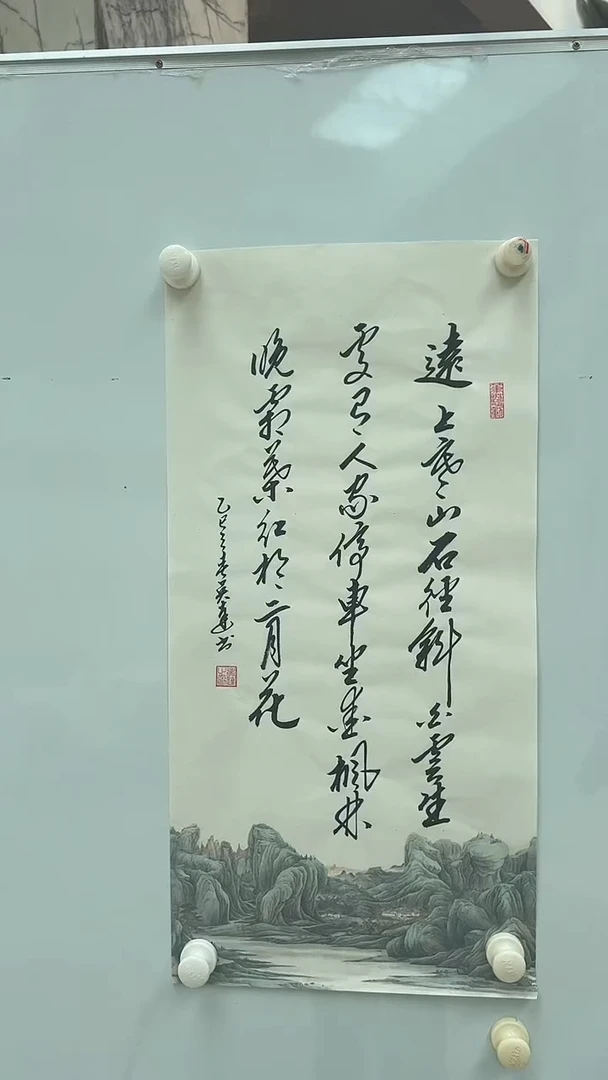 遠上寒山石徑斜白雲生
處有人家停車坐愛楓林
晚霜葉紅於二月花
乙巳之春吳书